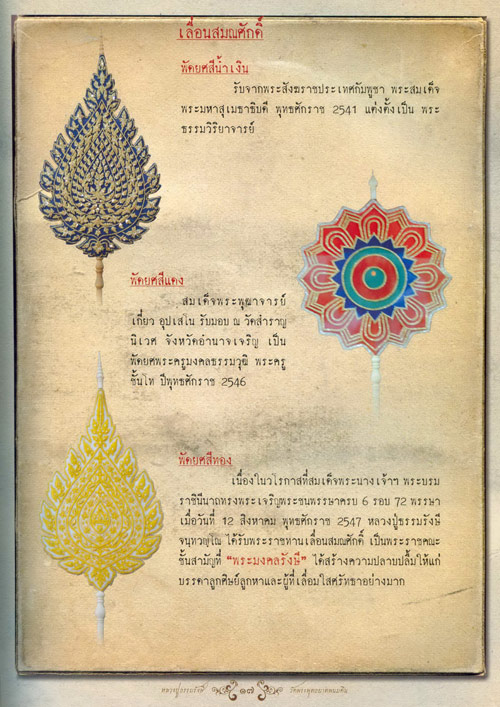 เลื่อนสมณศักดิ์
พัดยศสีน้ำเงิน
รับจากพระสังฆราชประเทศกัมพูชา พระสมเด็จ
พระมหาสุเมธาธิบดี พุทธศักราช 2541 แต่งตั้งเป็น พระ
ธรรมวิริยาจารย์
พัดยศสีแดง
สมเด็จพระพุฒาจารย์
เกี่ยว อุปเสโน รับมอบ ณ วัดสำราญ
นิเวศ จังหวัดอำนาจเจริญ เป็น
พัดยศพระครูมงคลธรรมวุฒิ พระครู
ชั้นโท ปีพุทธศักราช 2546
พัดยศสีทอง
เนื่องในวโรกาสที่สมเด็จพระนางเจ้าฯ พระบรม
ราชินีนาถทรงพระเจริญพระชนพรรษาครบ 6 รอบ 72 พรรษา
เมื่อวันที่ 12 สิงหาคม พุทธศักราช 2547 หลวงปู่ธรรมรังษี
จนฺทวณฺโณ ได้รับพระราชทานเลื่อนสมณศักดิ์ เป็นพระราชคณะ
ชั้นสามัญที่ “พระมงคลรังษี” ได้สร้างความปลาบปลื้มให้แก่
บรรดาลูกศิษย์ลูกหาและผู้ที่เลื่อมใสศรัทธาอย่างมาก
หลวงปู่ธรรมรังษี ๑๗ วัดพระพุทธบาทพนมดิน